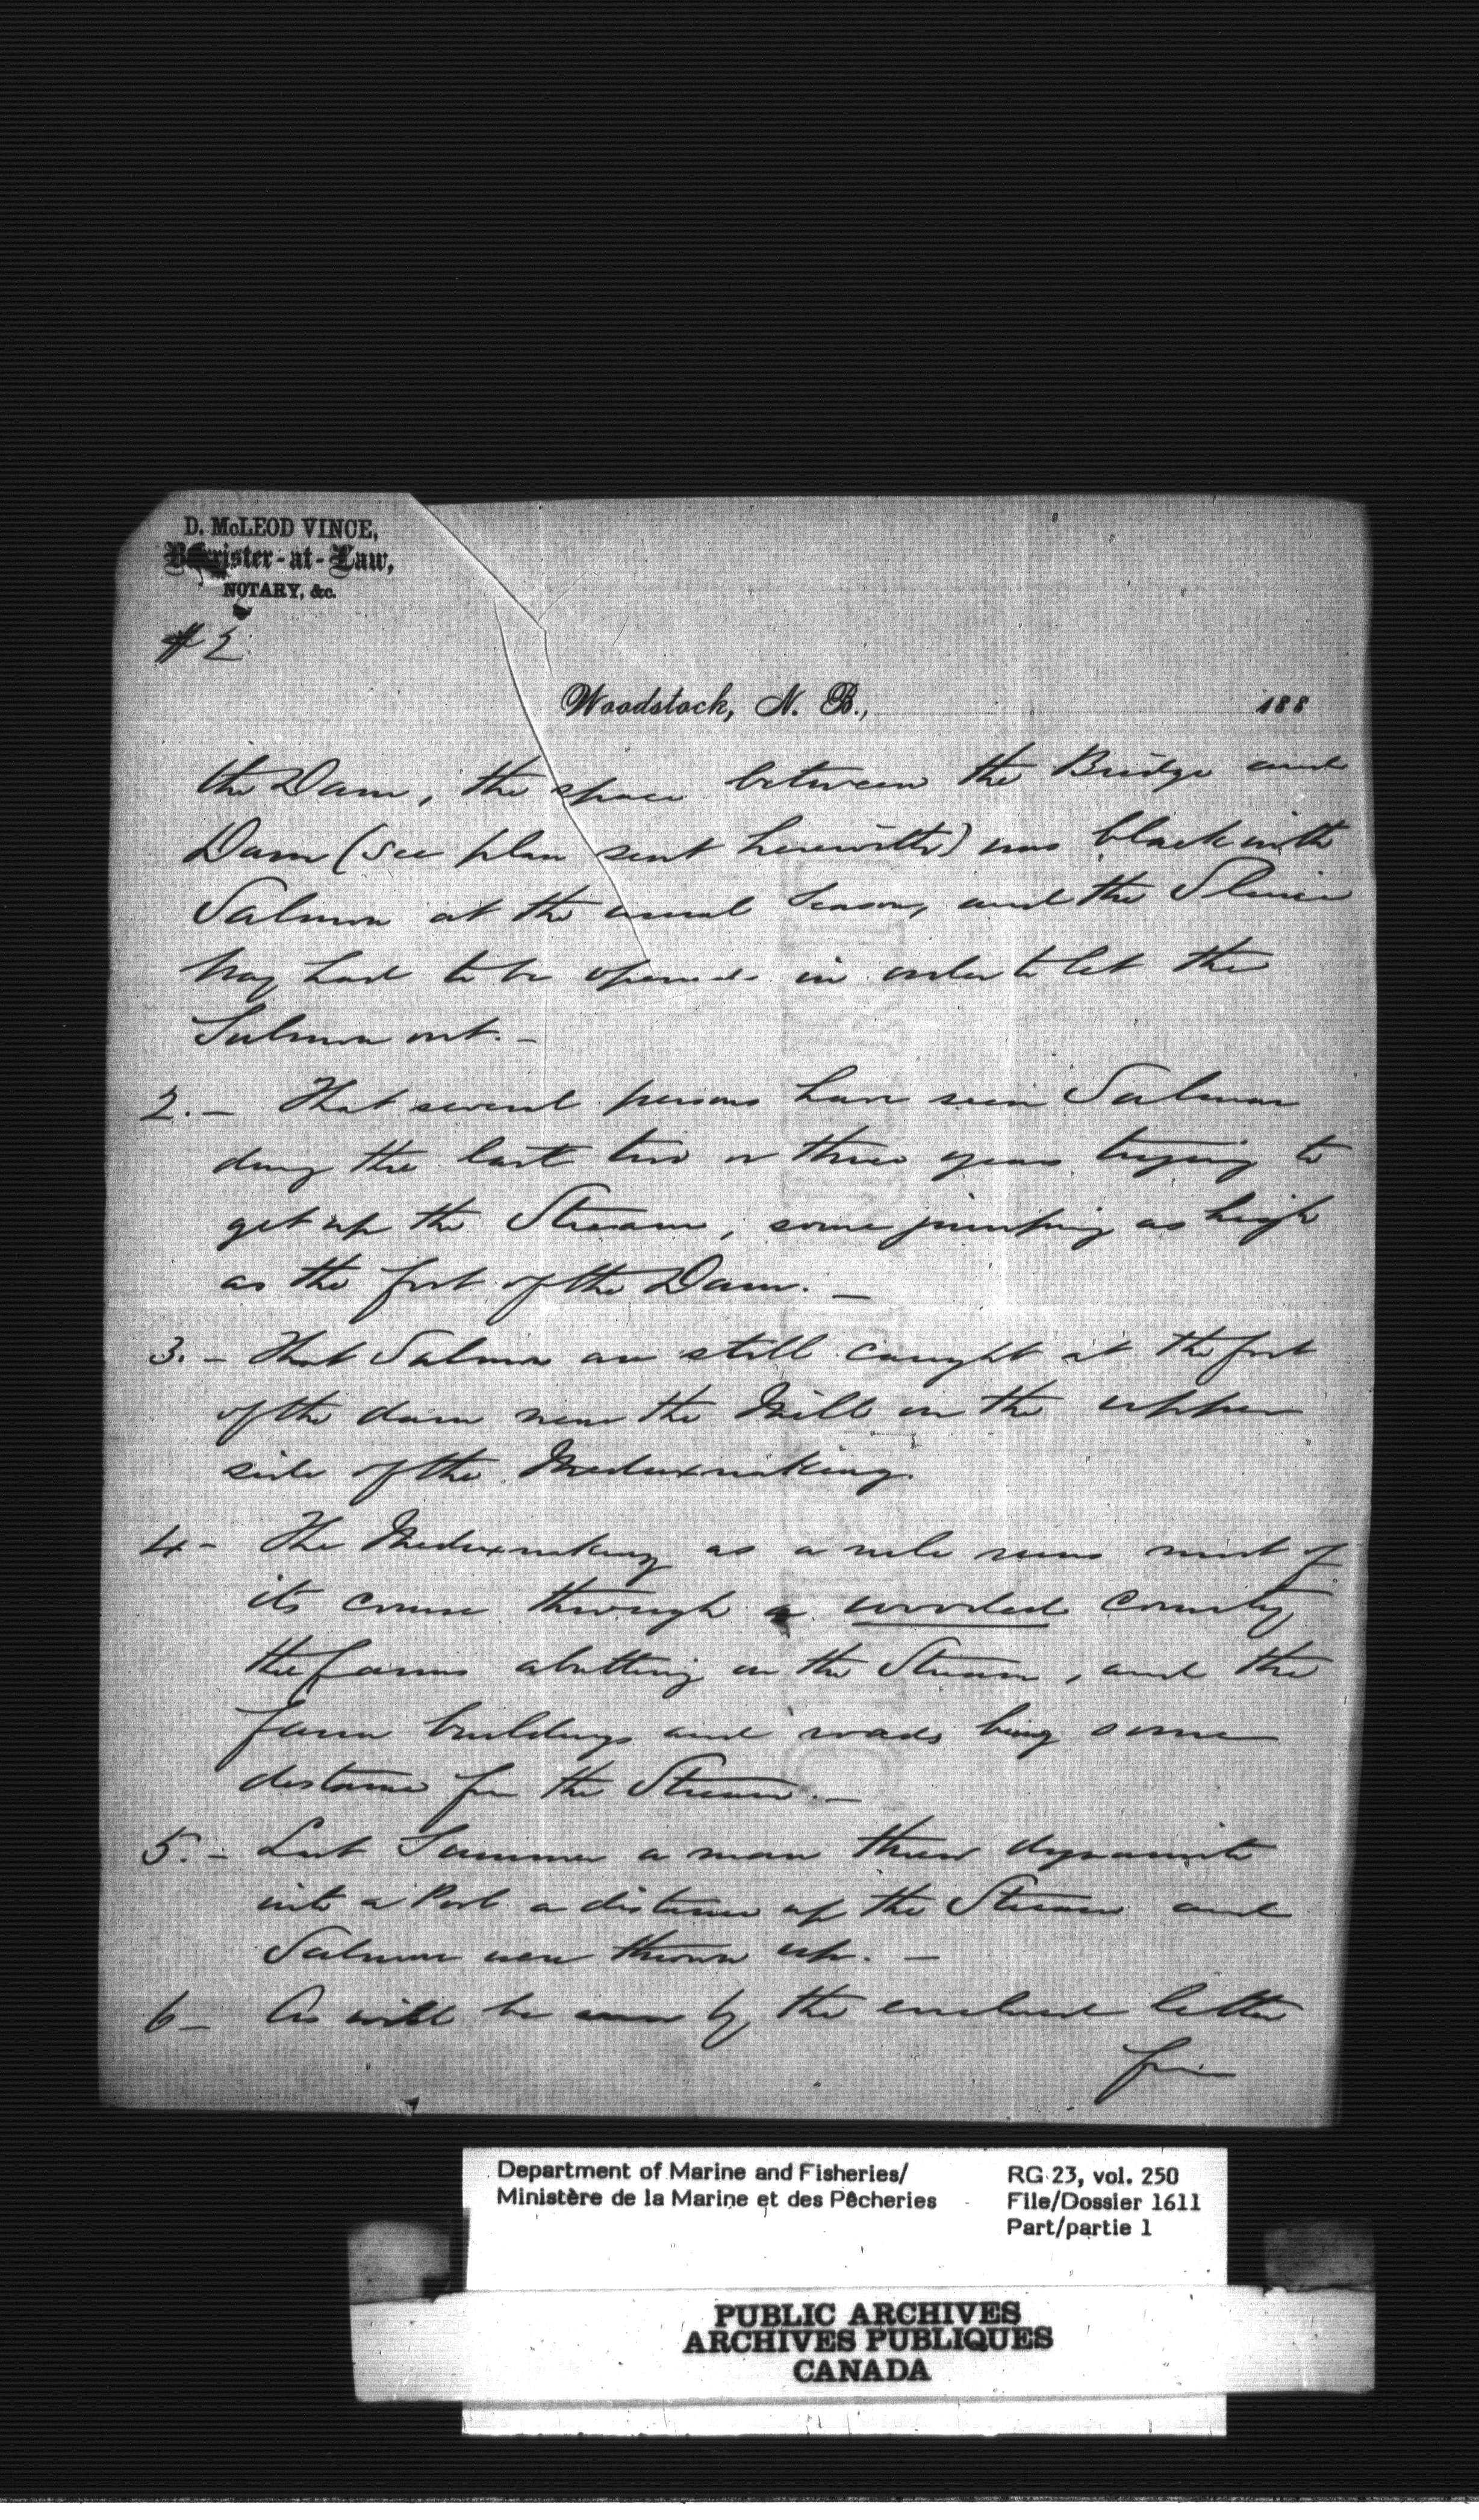 D. McLEOD VINCE,
Barrister-at-Law,
NOTARY, &c.
#2
Woodstock, N. B., 188
the Dam, the space between the Bridge and
Dam (see plan sent herewith) was black with
Salmon at the usual Season, and the Sluice
Way had to be opened in order to let the
Salmon out. -
2. - That several persons have seen Salmon
during the last two or three years trying to
get up the Stream, some jumping as high
as the foot of the Dam. -
3. - That Salmon are still caught at the foot
of the dam near the Mill on the upper
side of the Meduxnakeag.
4 - The Meduxnakeag as a rule runs most of
its course through a wooded country
the farms abutting on the Stream, and the
farm buildings and roads being some
distance from the Stream. -
5. - Last Summer a man threw dynamite
into a Pool a distance up the Stream and
Salmon were thrown up. -
6 - As will be seen by the enclosed letter
from
Department of Marine and Fisheries/
Ministère de la Marine et des Pêcheries
RG 23, vol. 250
File/Dossier 1611
Part/partie 1
PUBLIC ARCHIVES
ARCHIVES PUBLIQUES
CANADA